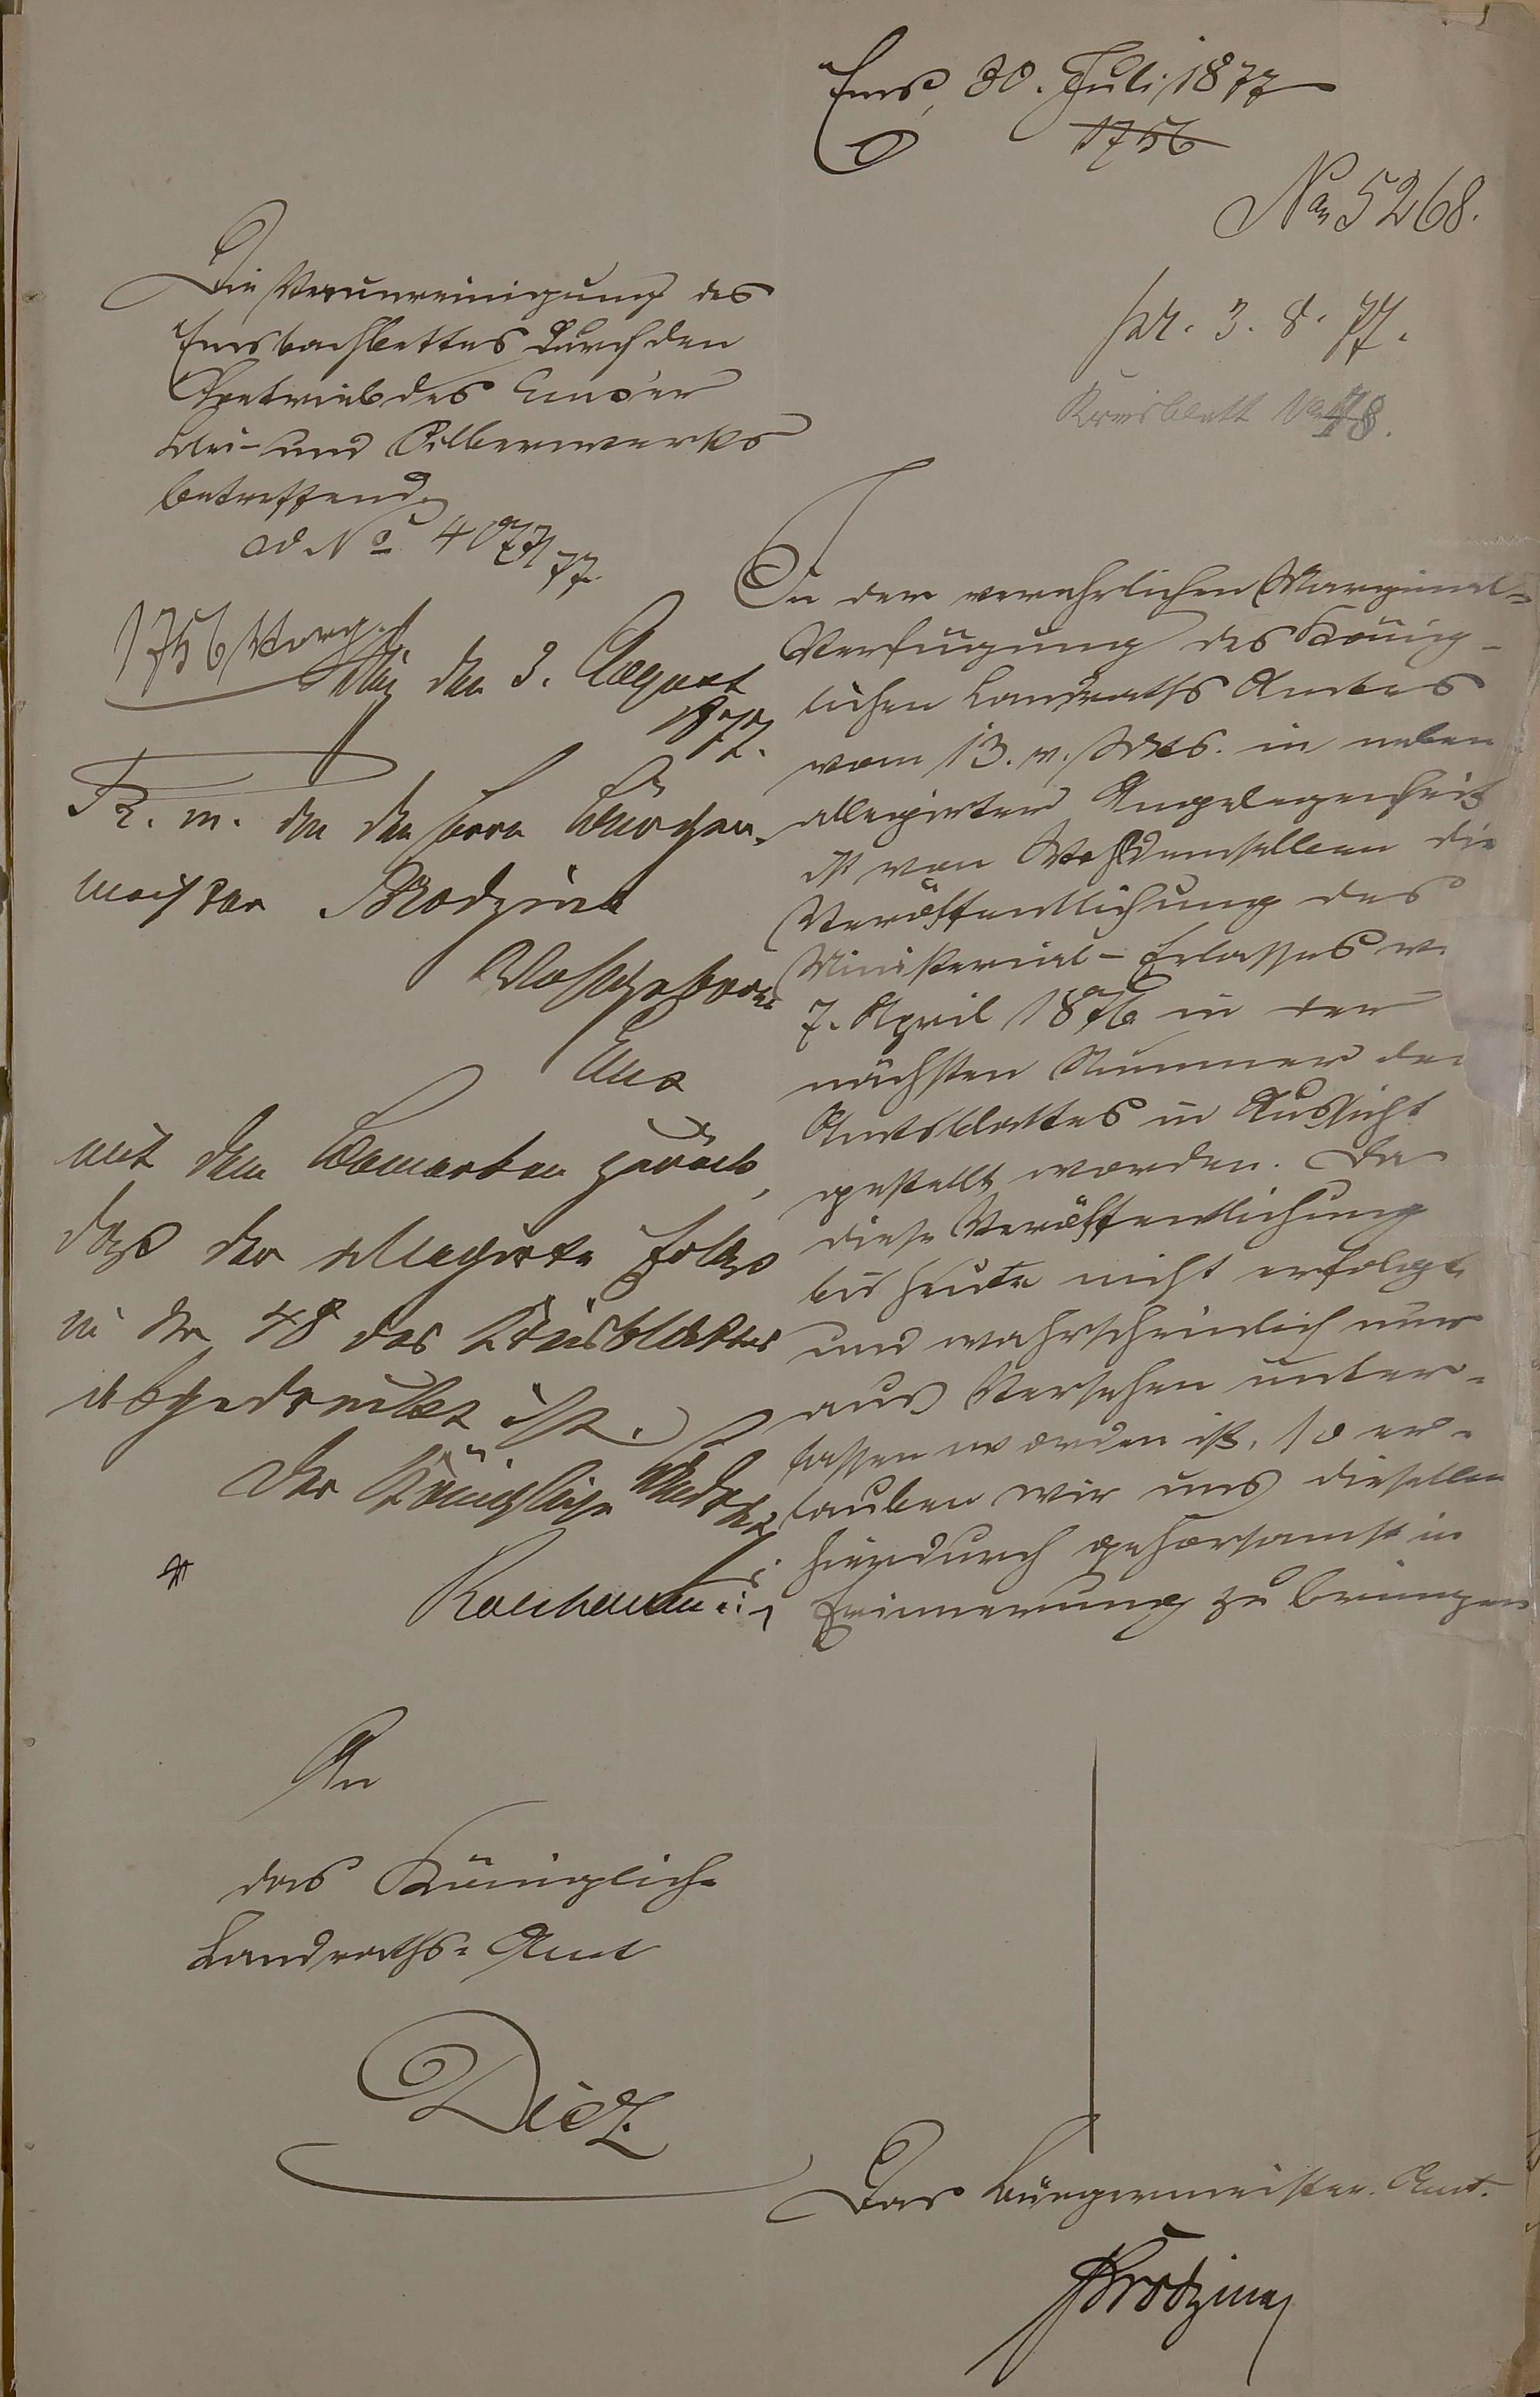 Ems, 30. Juli 1877
1756
No 5268.
pr. 3. 8. 77.
Kreisblatt No 48.
Die Verunreinigung des
Emsbachbettes durch den
Betrieb des Emser
Blei- und Silberwerks
betreffend.
ad No 4077/77.
In der verehrlichen Marginal-
Verfügung des König-
lichen Landraths Amtes
vom 13. v. Mts. in neben
allegirter Angelegenheit
ist von Wohldemselben die
Veröffentlichung des
Ministerial-Erlasses v.
7. April 1876 in der
nächsten Nummer des
Amtsblattes in Aussicht
gestellt worden. Da
diese Veröffentlichung
bis heute nicht erfolgt
und wahrscheinlich nur
aus Versehen unter-
lassen worden ist, so er-
lauben wir uns dieselbe
hierdurch gehorsamst in
Erinnerung zu bringen
Das Bürgermeister-Amt.
1756 Vorg.
Diez den 3. August
1877.
R. m. an den Herrn Bürger-
meister
Wohlgeboren
Ems
mit dem Bemerken zurück,
daß der allegirte Erlaß
in No 48 des Kreisblattes
abgedruckt ist.
Der Königliche Landrath
An
das Königliche
Landraths-Amt
Diez